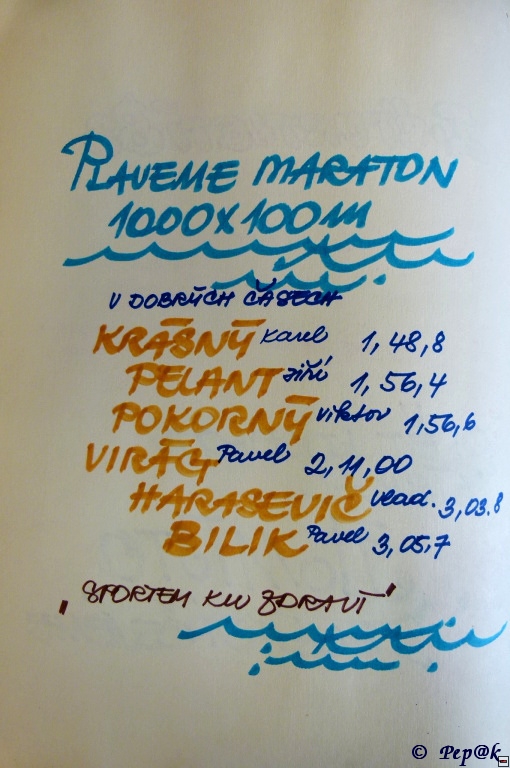 PLAVEME MARATON
1000x100m
V DOBRÝCH ČASECH
KRÁSNÝ Karel 1,48,8
PELANT Jiří 1,56,4
POKORNÝ Viktor 1,56,6
VIRÁG Pavel 2,11,00
HARASEVIČ Vlad. 3,03.8
BILIK Pavel 3,05,7
"SPORTEM KU ZDRAVÍ"
© Pep@k